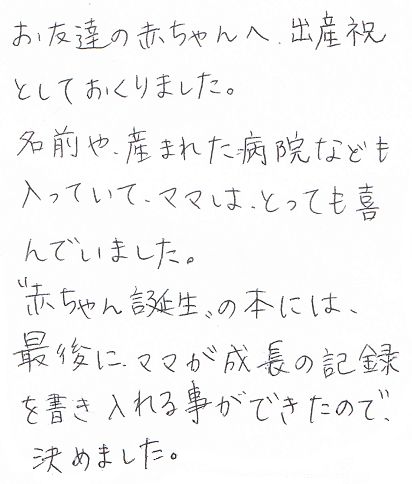 お友達の赤ちゃんへ、出産祝
としておくりました。
名前や、産まれた病院なども
入っていて、ママは、とっても喜
んでいました。
〝赤ちゃん誕生〟の本には、
最後に、ママが成長の記録
を書き入れる事ができたので、
決めました。